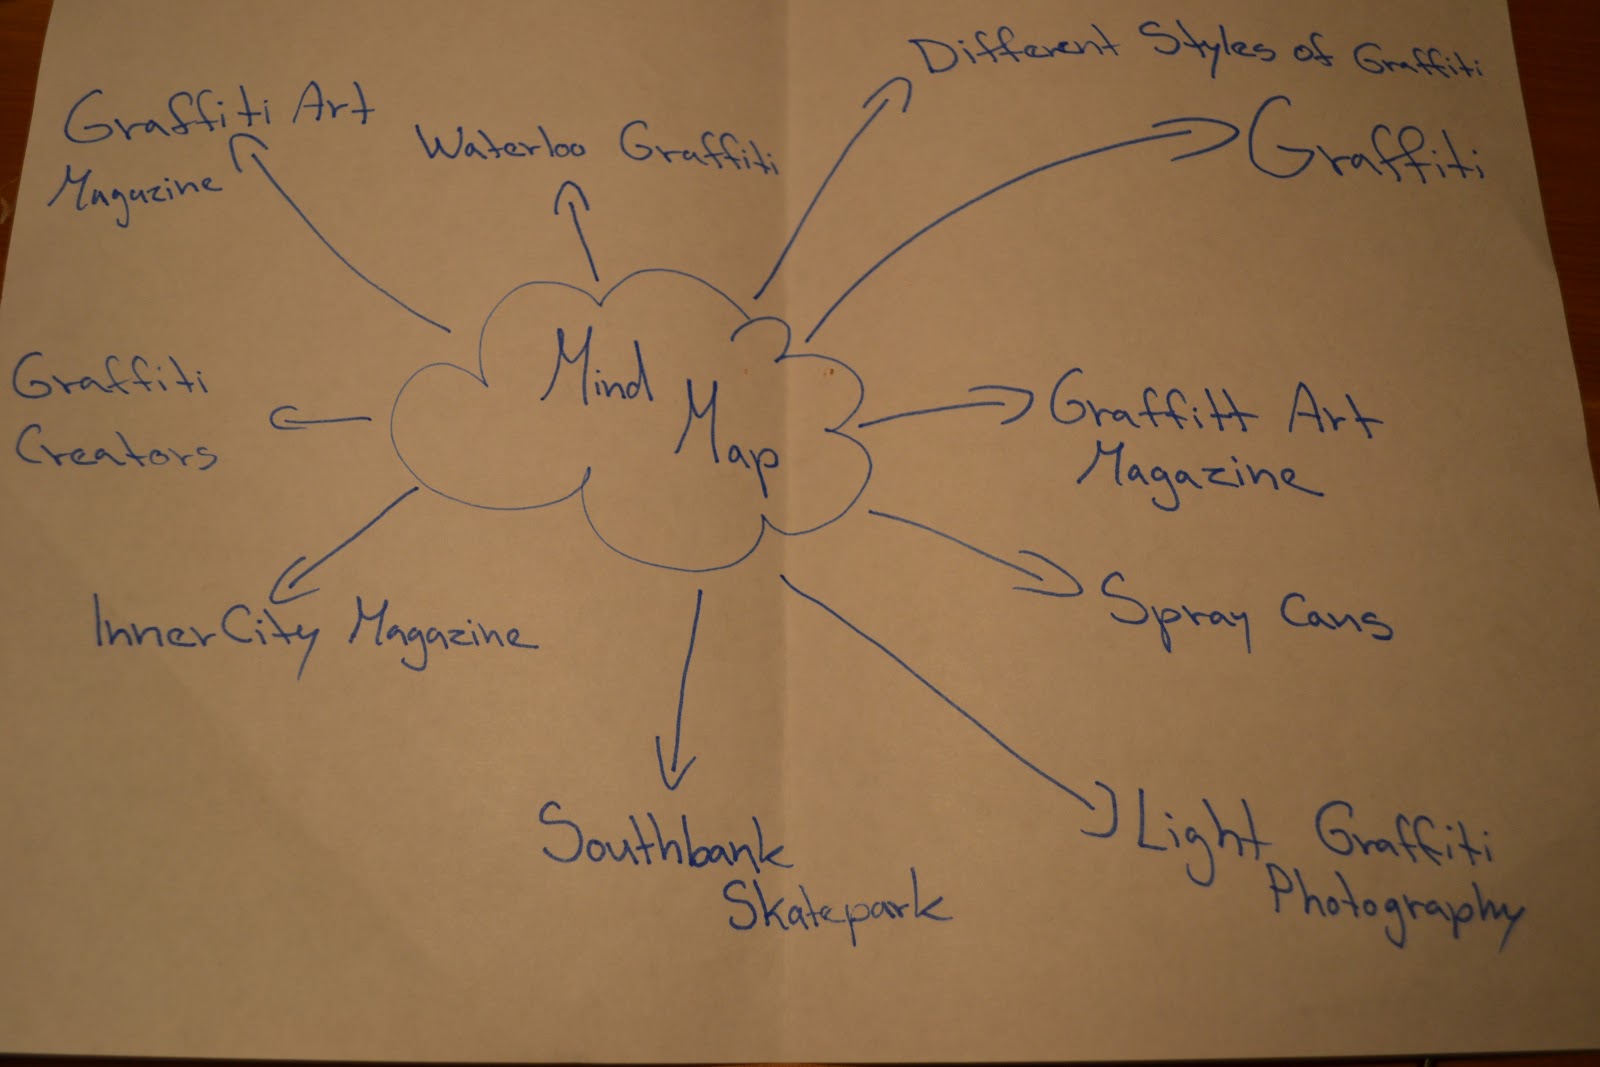 Different Styles of Graffiti
Graffiti Art
Magazine
Waterloo Graffiti
Graffiti
Mind
Map
Graffiti
Creators
Graffitt Art
Magazine
InnerCity Magazine
Spray Cans
Southbank
Skatepark
Light Graffiti
Photography